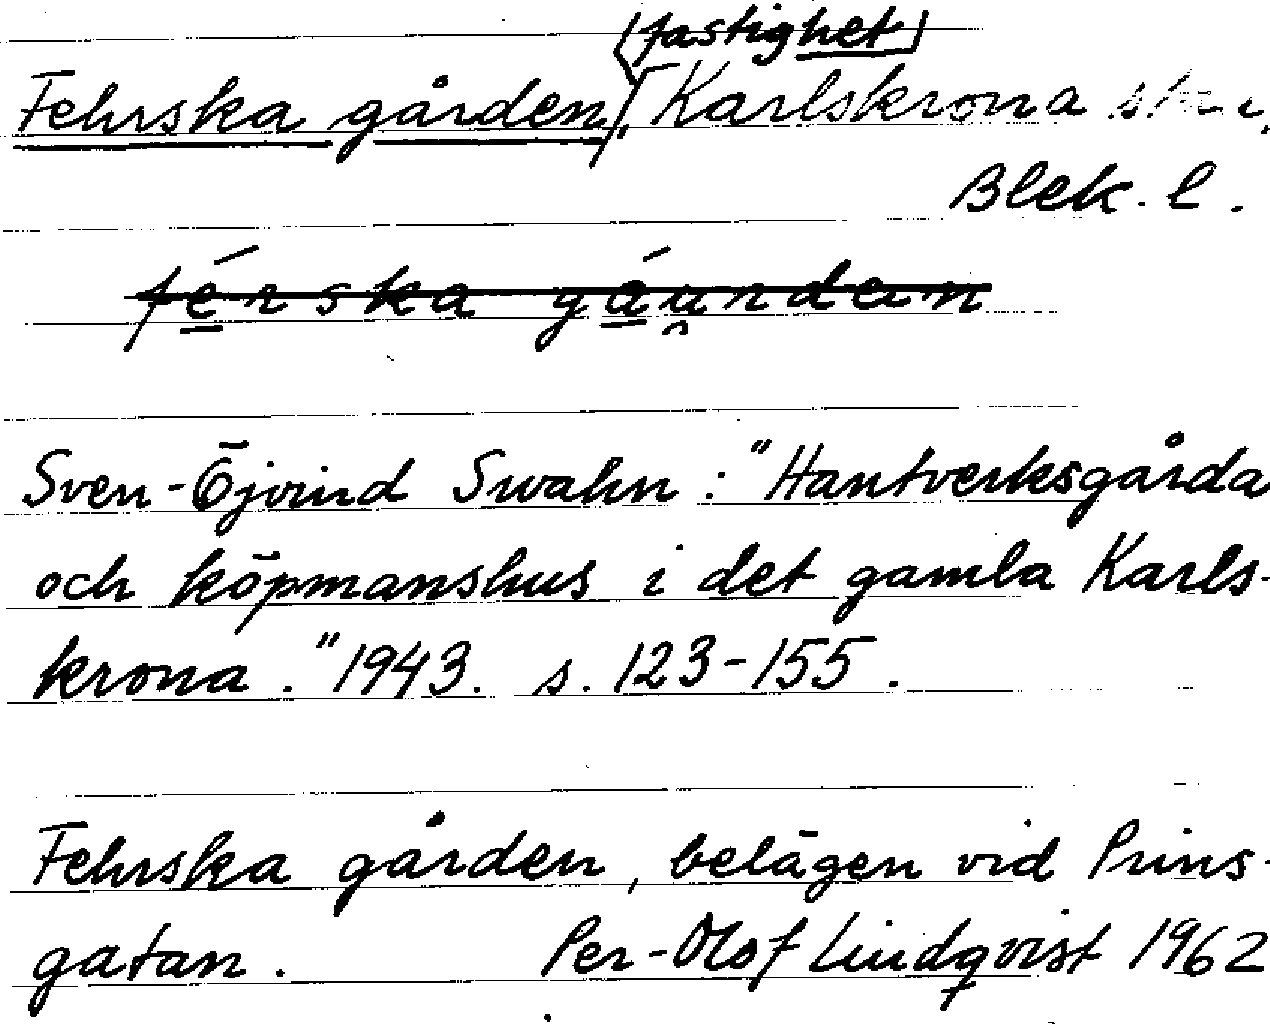 (fastighet)
Fehrska gården, Karlskrona
Blek. l.
Sven-Öjvind Swahn: "Hantverksgårda
och köpmanshus i det gamla Karls-
krona." 1943. s. 123-155.
Fehrska gården, belägen vid Prins-
gatan. Per-Olof Lindqvist 1962